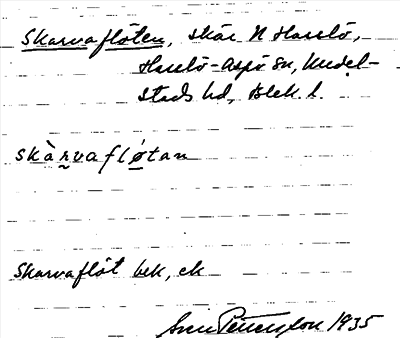 Skarvaflöten, skär N Hasslö,
Hasslö-Aspö sn, Medel-
stads hd, Blek. l.
skàrvaflotan
Skarvaflöt bek, ek
Pettersson 1935